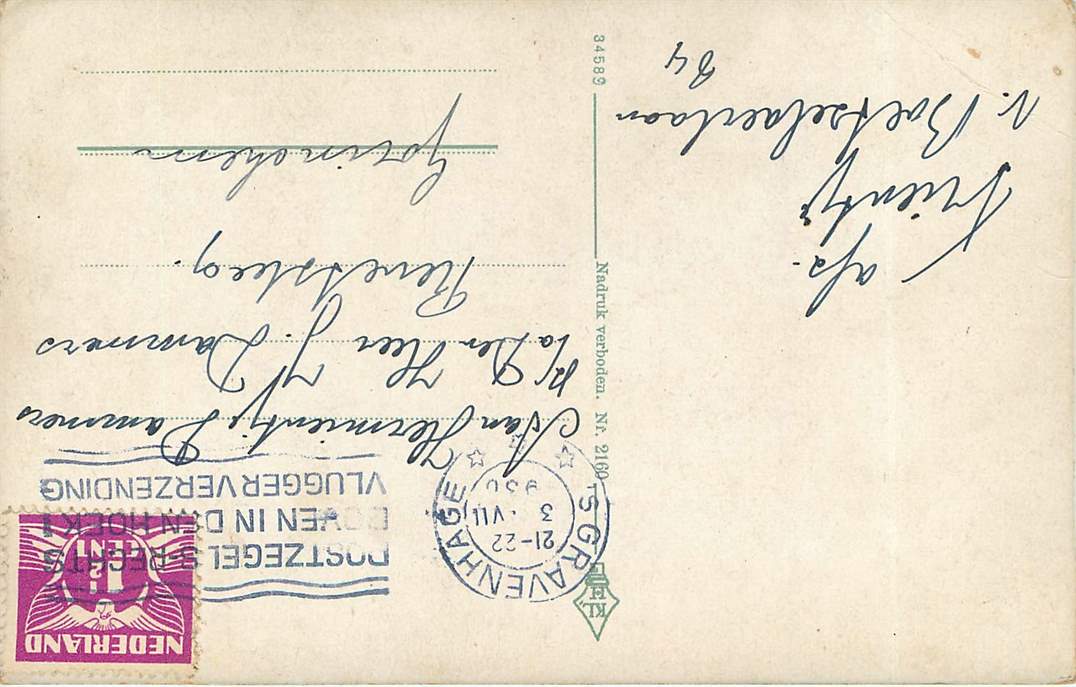 NEDERLAND
1½
CENT
'S GRAVENHAGE
21-22
3 VII
193
POSTZEGELS-RECHTS
BOVEN IN DEN HOEK!
VLUGGER VERZENDING
KL.
H
Nadruk verboden. Nr. 2160
34589
Aan Hermientje Dammers
p/a Den Heer J. Dammers
Revetsteeg.
Gorinchem
afs.
Trientje
v. Boetzelaerlaan
84